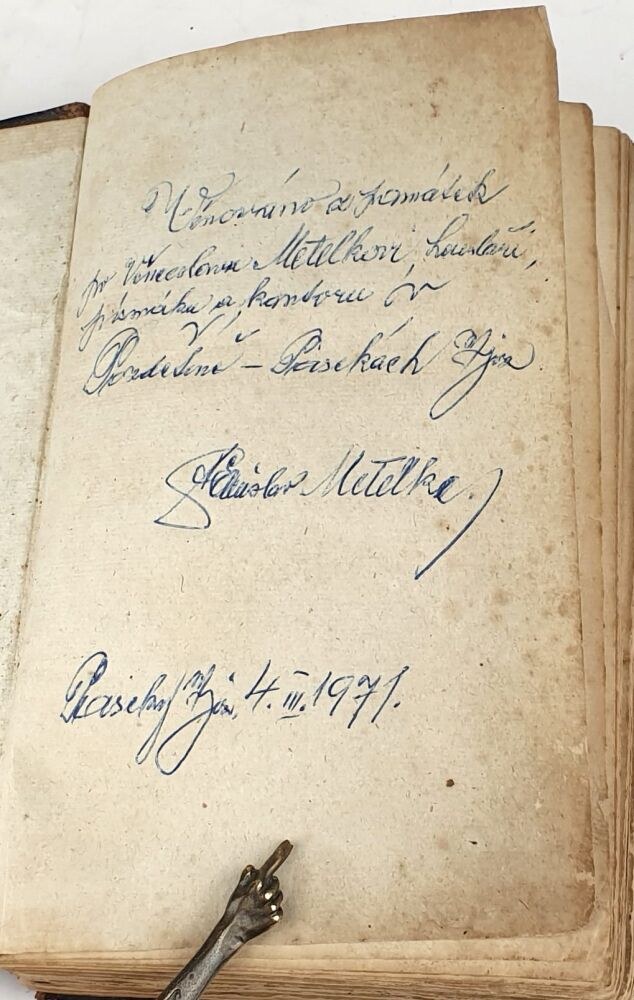 Věnováno z památek
po Věnceslavu Metelkovi, houslaři,
písmáku a kantoru v
– Pasekách n/Jiz.
Metelka.
Paseky n/Jiz. 4. III. 1971.